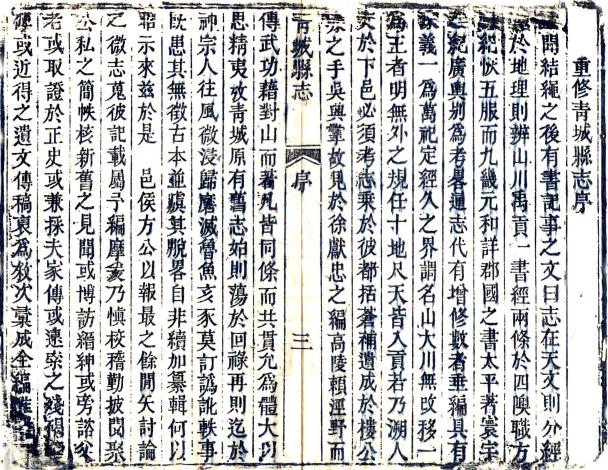 重修青城縣志序
聞結繩之後有書記事之文曰志在天文則分經
於地理則辨山川禹貢一書經兩條於四隩職方
紀恢五服而九畿元和詳郡國之書太平著寰宇
之紀廣輿別為考畧通志代有增修數者垂編具有
義一為萬祀定經久之界謂名山大川無改移一
為王者明無外之規任十地尺天皆入貢若乃溯人
文於下邑必須考志乘於彼都括蒼補遺成於樓公
之手吳興掌故見於徐獻忠之編高陵賴涇野而
青城縣志
序
三
傳武功藉對山而著凡皆同條而共貫允為體大以
思精夷攷青城原有舊志始則蕩於回祿再則迄於
神宗人往風微浸歸磨滅魯魚亥豕莫訂譌訛軼事
既患其無徵古本並虞其脫畧自非續加纂輯何以
昭示來茲於是 邑侯方公以報最之餘閒矢討論
之微志蒐彼記載屬予編摩爰乃慎校稽勤披閱聚
公私之簡帙核新舊之見聞或博訪縉紳或旁諮父
老或取證於正史或兼採夫家傳或遠索之殘碣
或近得之遺文傳稿裒為叙次彙成全編